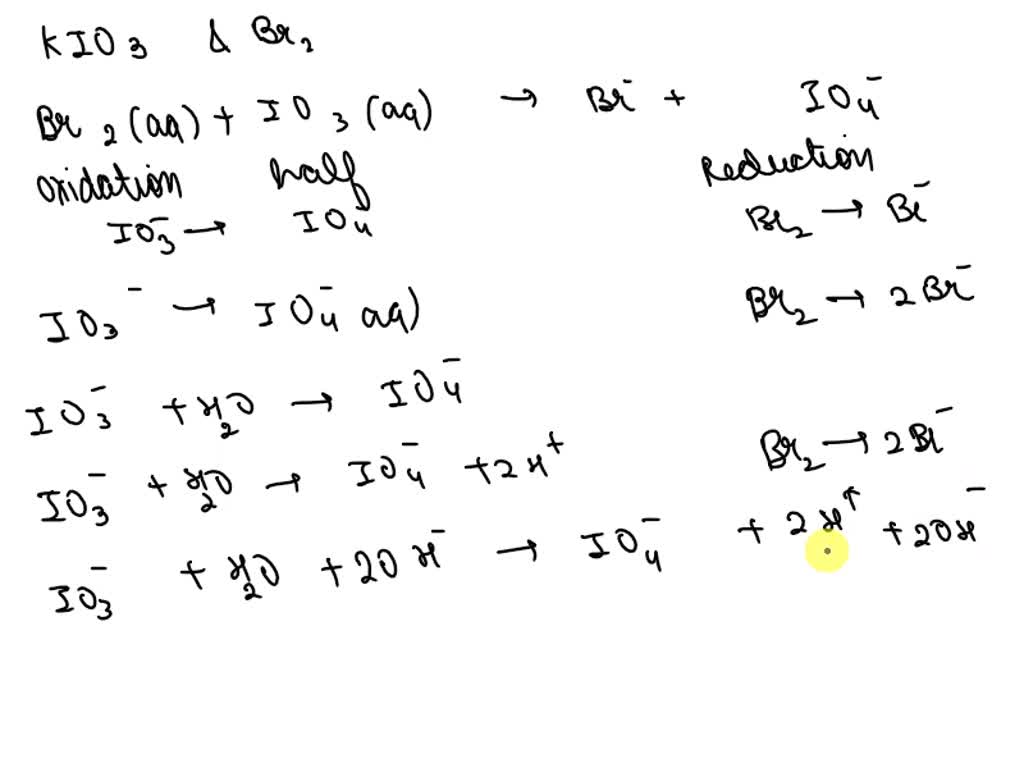 KIO3 & Br2
Br2(aq) + IO3(aq) → Br⁻ + IO4⁻
oxidation half Reduction
IO3⁻ → IO4 Br2 → Br⁻
IO3⁻ → IO4⁻ aq) Br2 → 2Br⁻
IO3⁻ + H2O → IO4⁻
IO3⁻ + H2O → IO4⁻ + 2H⁺ Br2 → 2Br⁻
IO3⁻ + H2O + 2OH⁻ → IO4⁻ + 2H⁺ + 2OH⁻